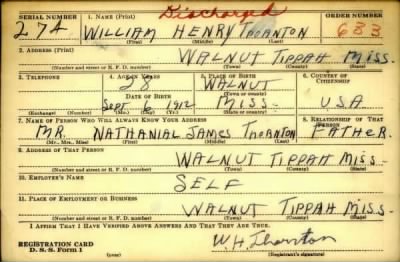 SERIAL NUMBER 1. NAME (Print) Discharged ORDER NUMBER
274 WILLIAM HENRY THORNTON 633
(First) (Middle) (Last)
2. ADDRESS (Print)
WALNUT TIPPAH MISS.
(Number and street or R. F. D. number) (Town) (County) (State)
3. TELEPHONE 4. AGE IN YEARS 5. PLACE OF BIRTH 6. COUNTRY OF CITIZENSHIP
28 WALNUT
DATE OF BIRTH (Town or county)
Sept 6, 1912 MISS. U.S.A.
(Exchange) (Number) (Mo.) (Day) (Yr.) (State or country)
7. NAME OF PERSON WHO WILL ALWAYS KNOW YOUR ADDRESS 8. RELATIONSHIP OF THAT PERSON
MR. NATHANIAL JAMES THORNTON FATHER
(Mr., Mrs., Miss) (First) (Middle) (Last)
9. ADDRESS OF THAT PERSON
WALNUT TIPPAH MISS.
(Number and street or R. F. D. number) (Town) (County) (State)
10. EMPLOYER'S NAME
SELF
11. PLACE OF EMPLOYMENT OR BUSINESS
WALNUT TIPPAH MISS.
(Number and street or R. F. D. number) (Town) (County) (State)
I AFFIRM THAT I HAVE VERIFIED ABOVE ANSWERS AND THAT THEY ARE TRUE.
REGISTRATION CARD W.H. Thornton
D. S. S. Form 1 (over) (Registrant's signature)